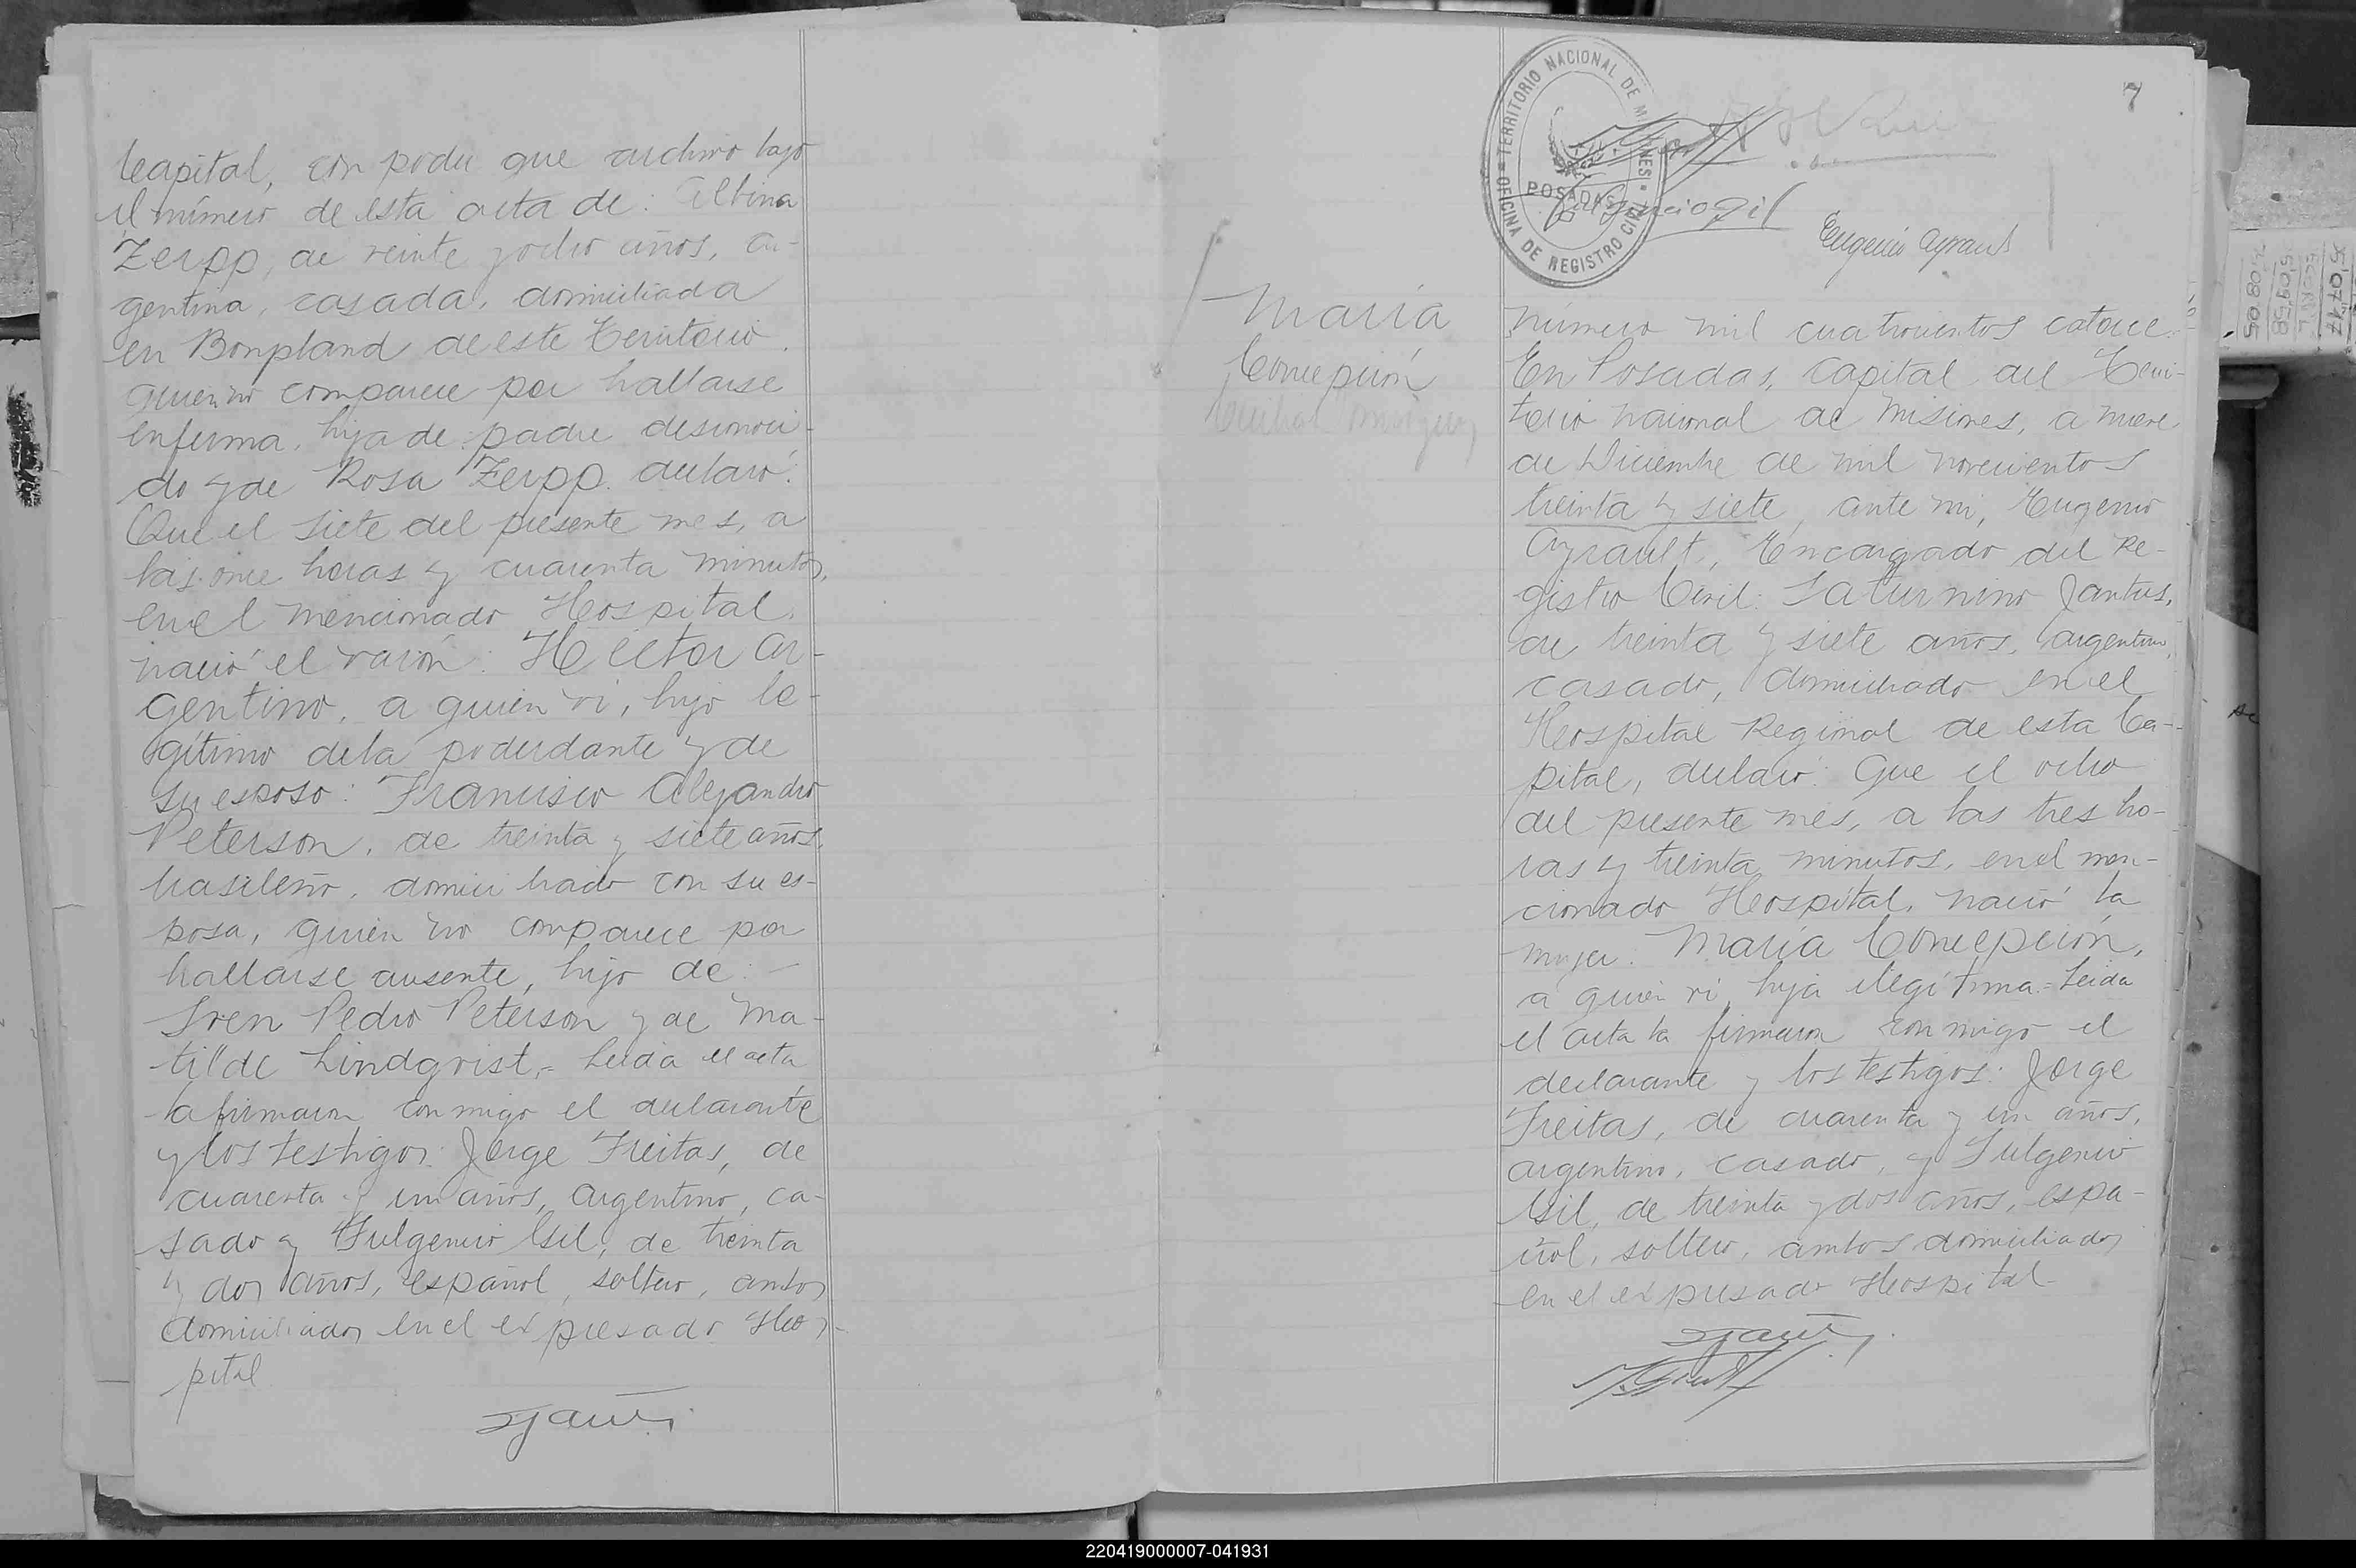 Capital, con poder que archivo bajo
el número de esta acta de: Albina
Zerpp, de veinte y ocho años, ar-
gentina, casada, domiciliada
en Bonpland de este Territorio.
quien no comparece por hallarse
enferma, hija de padre desconoci-
do y de Rosa Zerpp. declaró:
Que el siete del presente mes, a
las once horas y cuarenta minutos,
en el mencionado Hospital,
nació el varón: Héctor Ar-
gentino, a quien vi, hijo le-
gítimo de la poderdante y de
su esposo: Francisco Alejandro
Peterson, de treinta y siete años,
brasileño, domiciliado con su es-
posa, quien no comparece por
hallarse ausente, hijo de: -
Sven Pedro Peterson y de Ma-
tilde Lindqvist.= Leida el acta
la firmaron conmigo el declarante
y los testigos: Jorge Freitas, de
cuarenta y un años, argentino, ca-
sado y Fulgencio Gil, de treinta
y dos años, español, soltero, ambos
domiciliados en el expresado Hos-
pital
7
TERRITORIO NACIONAL DE MISIONES
POSADAS
OFICINA DE REGISTRO CIVIL
Fulgencio Gil
Eugenio Ayrault
María
Concepción
Número mil cuatrocientos catorce.
En Posadas, Capital del Terri-
torio Nacional de Misiones, a nueve
de Diciembre de mil novecientos
treinta y siete, ante mi, Eugenio
Ayrault, Encargado del Re-
gistro Civil: Saturnino Jantus,
de treinta y siete años, argentino,
casado, domiciliado en el
Hospital Regional de esta Ca-
pital, declaró: Que el ocho
del presente mes, a las tres ho-
ras y treinta minutos, en el men-
cionado Hospital, nació la
mujer: María Concepción,
a quien vi, hija ilegítima.= Leida
el acta la firmaron conmigo el
declarante y los testigos: Jorge
Freitas, de cuarenta y un años,
argentino, casado, y Fulgencio
Gil, de treinta y dos años, espa-
ñol, soltero, ambos domiciliados
en el expresado Hospital
50717
50958
40805
220419000007-041931